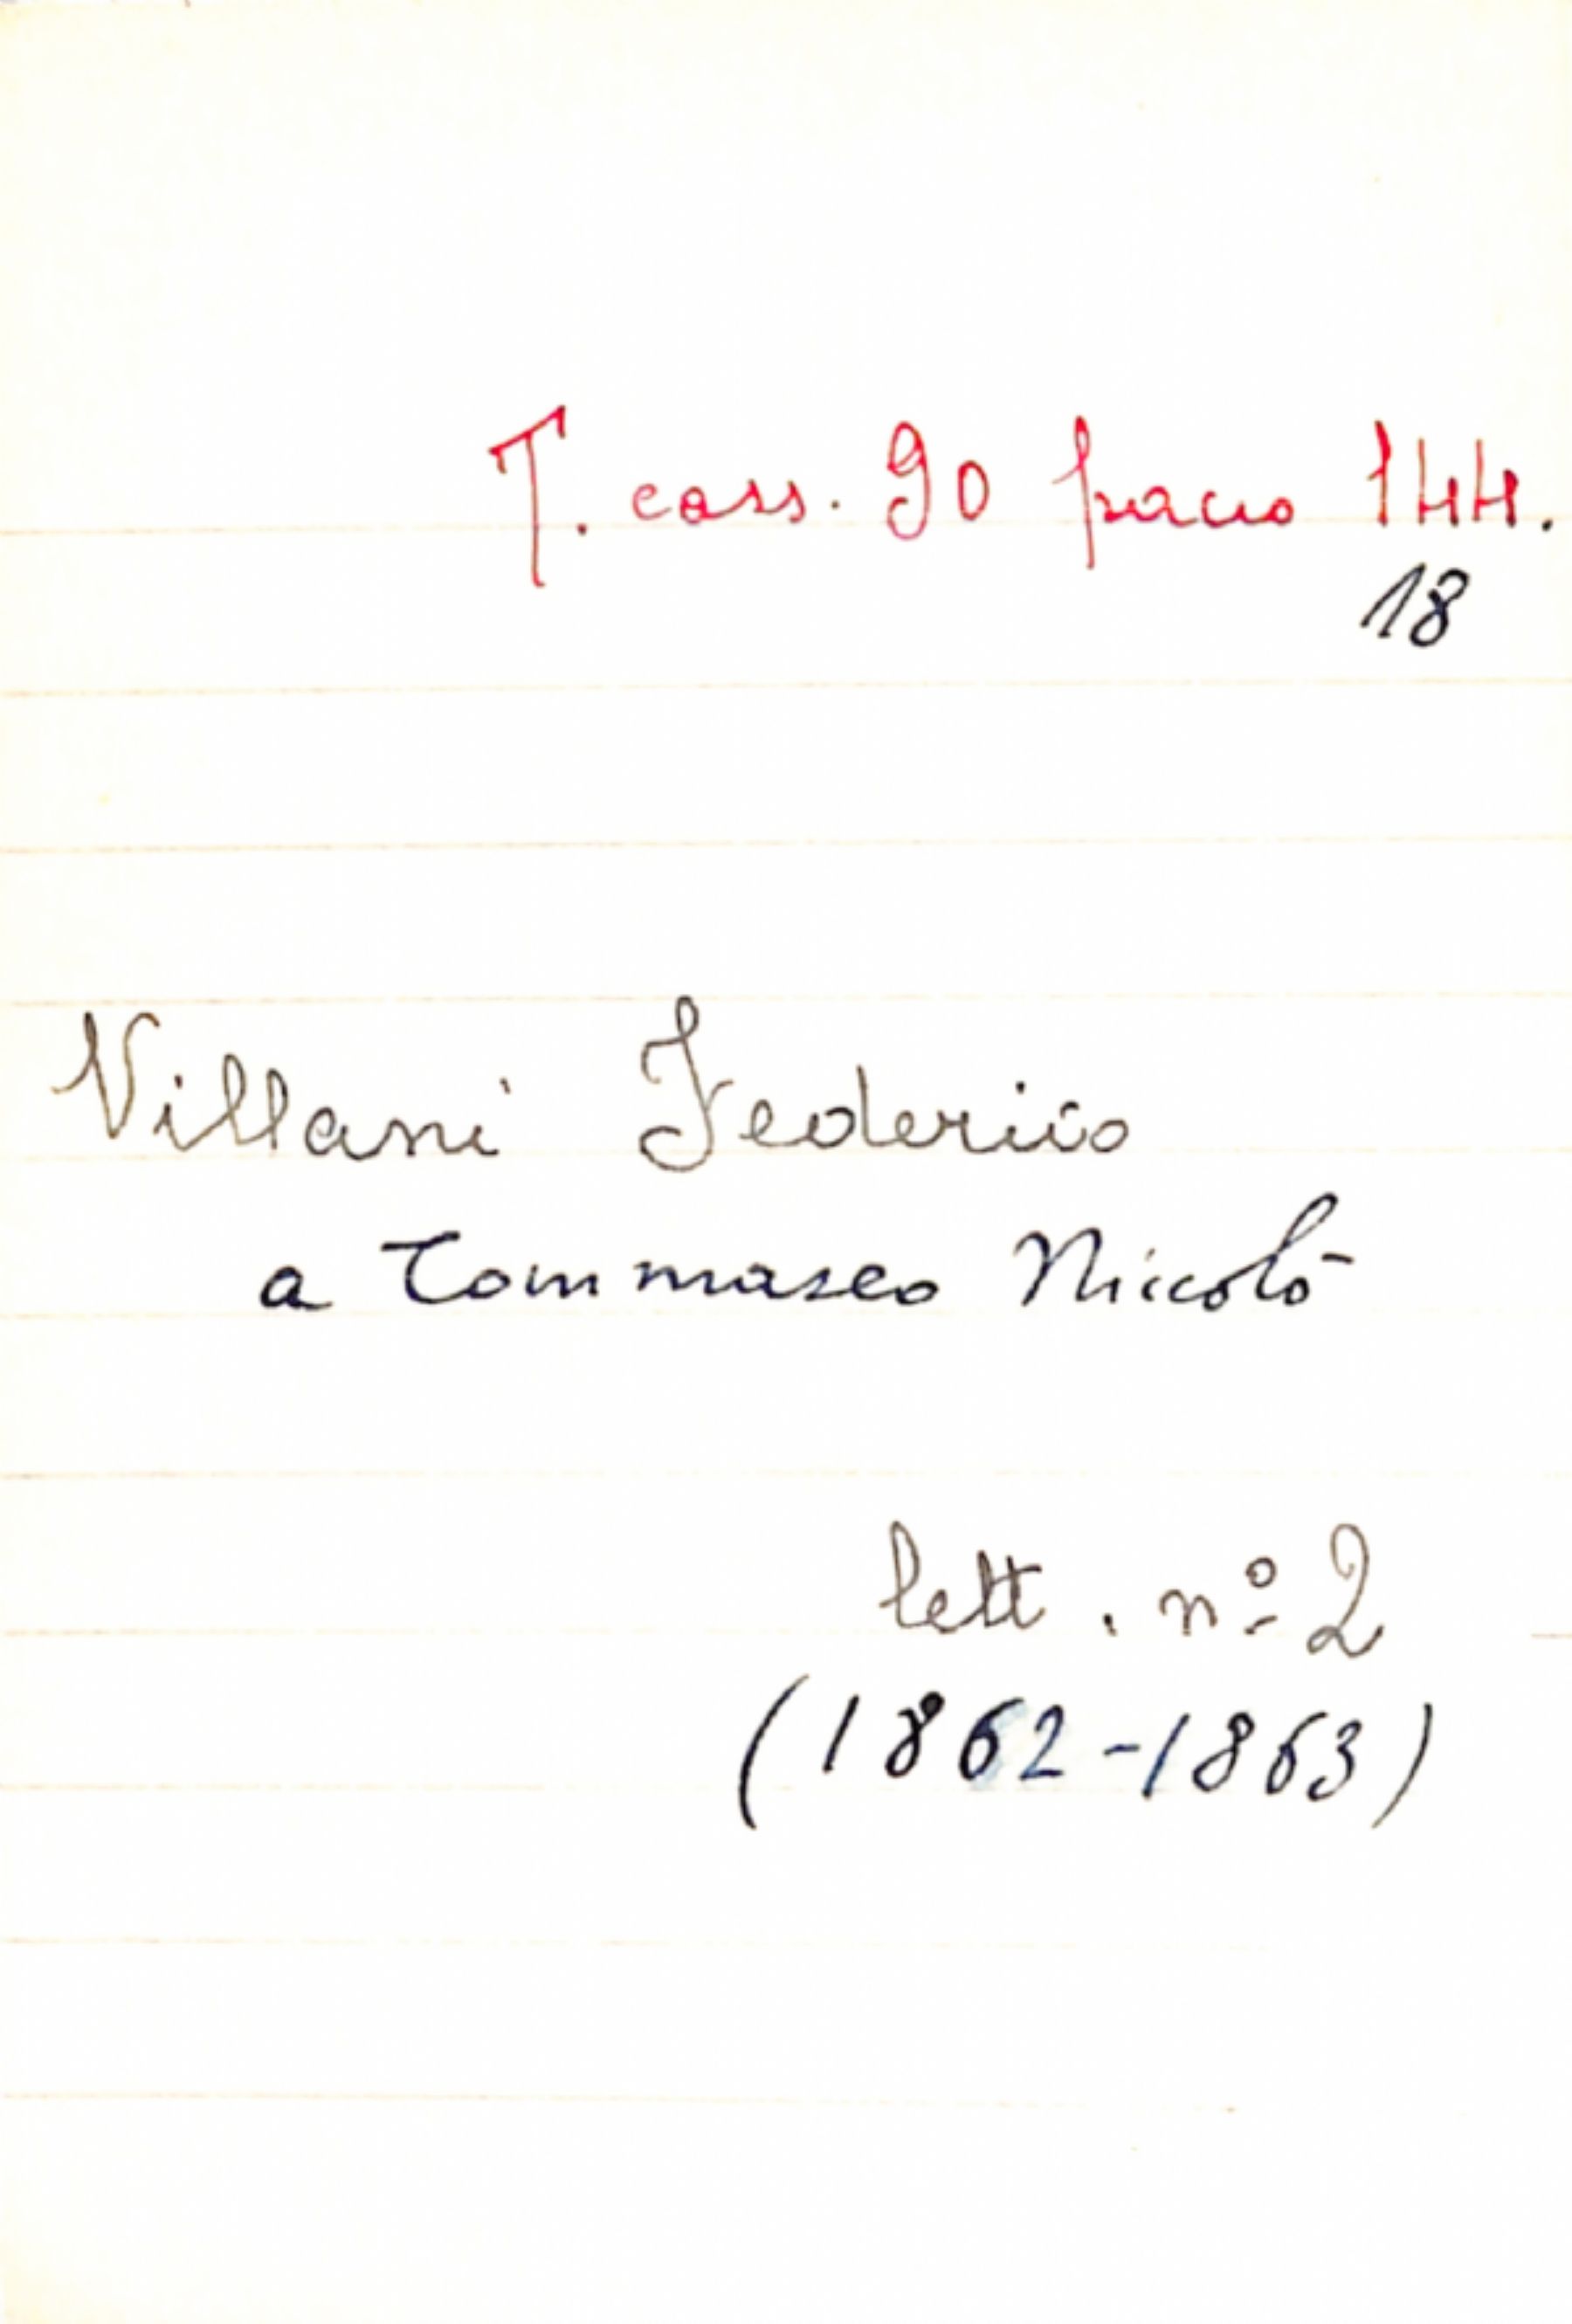 T. cass. 90 pacco 144.
18
Villani Federico
a Tommaseo Niccolò
lett. nº 2
(1862-1863)